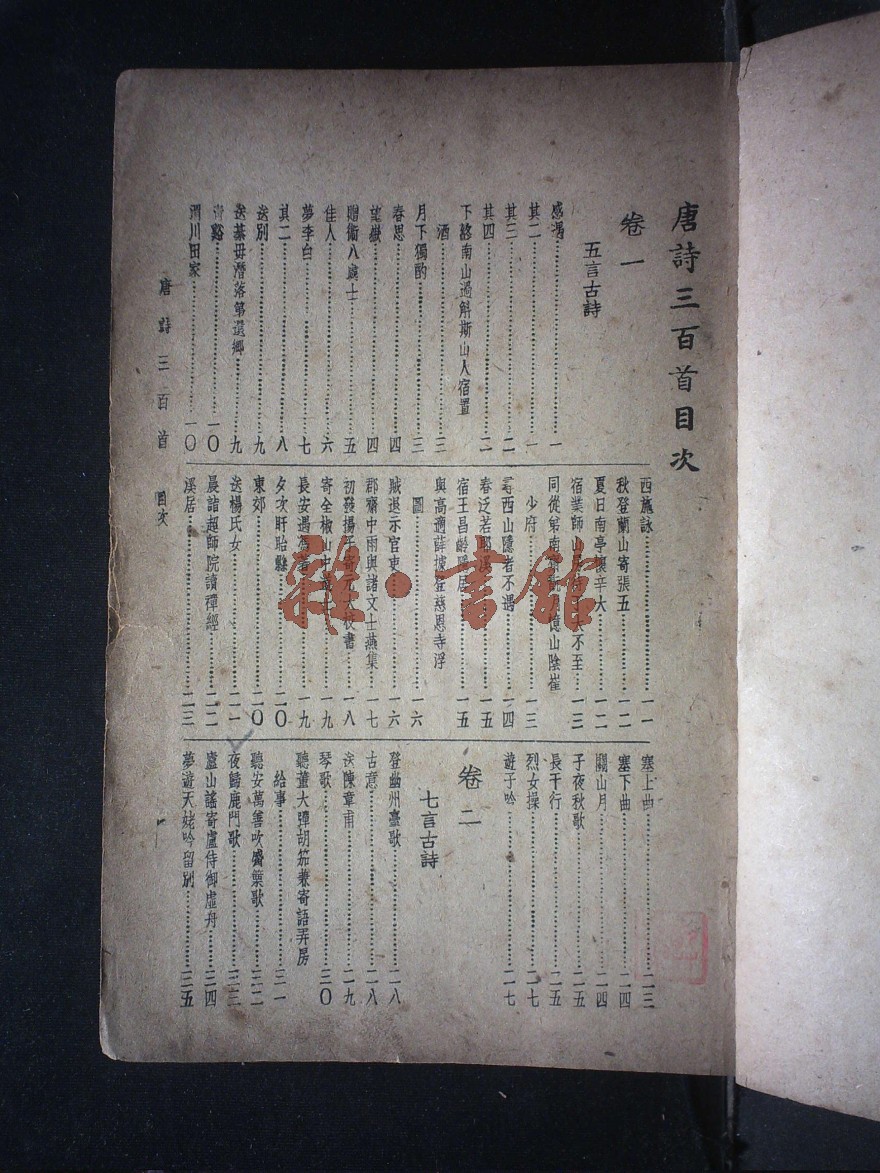 唐詩三百首目次
卷一
五言古詩
感遇…………一
其二…………一
其三…………二
其四…………二
下終南山過斛斯山人宿置
酒…………三
月下獨酌…………三
春思…………四
望嶽…………四
贈衞八處士…………五
佳人…………六
夢李白…………七
其二…………八
送別…………九
送綦毋潛落第還鄉…………九
青谿…………一〇
渭川田家…………一〇
西施詠…………一一
秋登蘭山寄張五…………一二
夏日南亭懷辛大…………一二
宿業師山房待丁大不至…………一三
同從弟南齋翫月憶山陰崔
少府…………一三
尋西山隱者不遇…………一四
春泛若耶溪…………一五
宿王昌齡隱居…………一五
與高適薛據登慈恩寺浮
圖…………一六
賊退示官吏…………一六
郡齋中雨與諸文士燕集…………一七
初發揚子寄元大校書…………一八
寄全椒山中道士…………一九
長安遇馮著…………一九
夕次盱眙縣…………二〇
東郊…………二〇
送楊氏女…………二一
晨詣超師院讀禪經…………二二
溪居…………二三
塞上曲…………二三
塞下曲…………二四
關山月…………二四
子夜秋歌…………二五
長干行…………二五
烈女操…………二七
遊子吟…………二七
卷二
七言古詩
登幽州臺歌…………二八
古意…………二八
送陳章甫…………二九
琴歌…………三〇
聽董大彈胡笳兼寄語弄房
給事…………三一
聽安萬善吹觱篥歌…………三二
夜歸鹿門歌…………三三
廬山謠寄盧侍御虛舟…………三四
夢遊天姥吟留別…………三五
唐詩三百首 目次
雜·書館